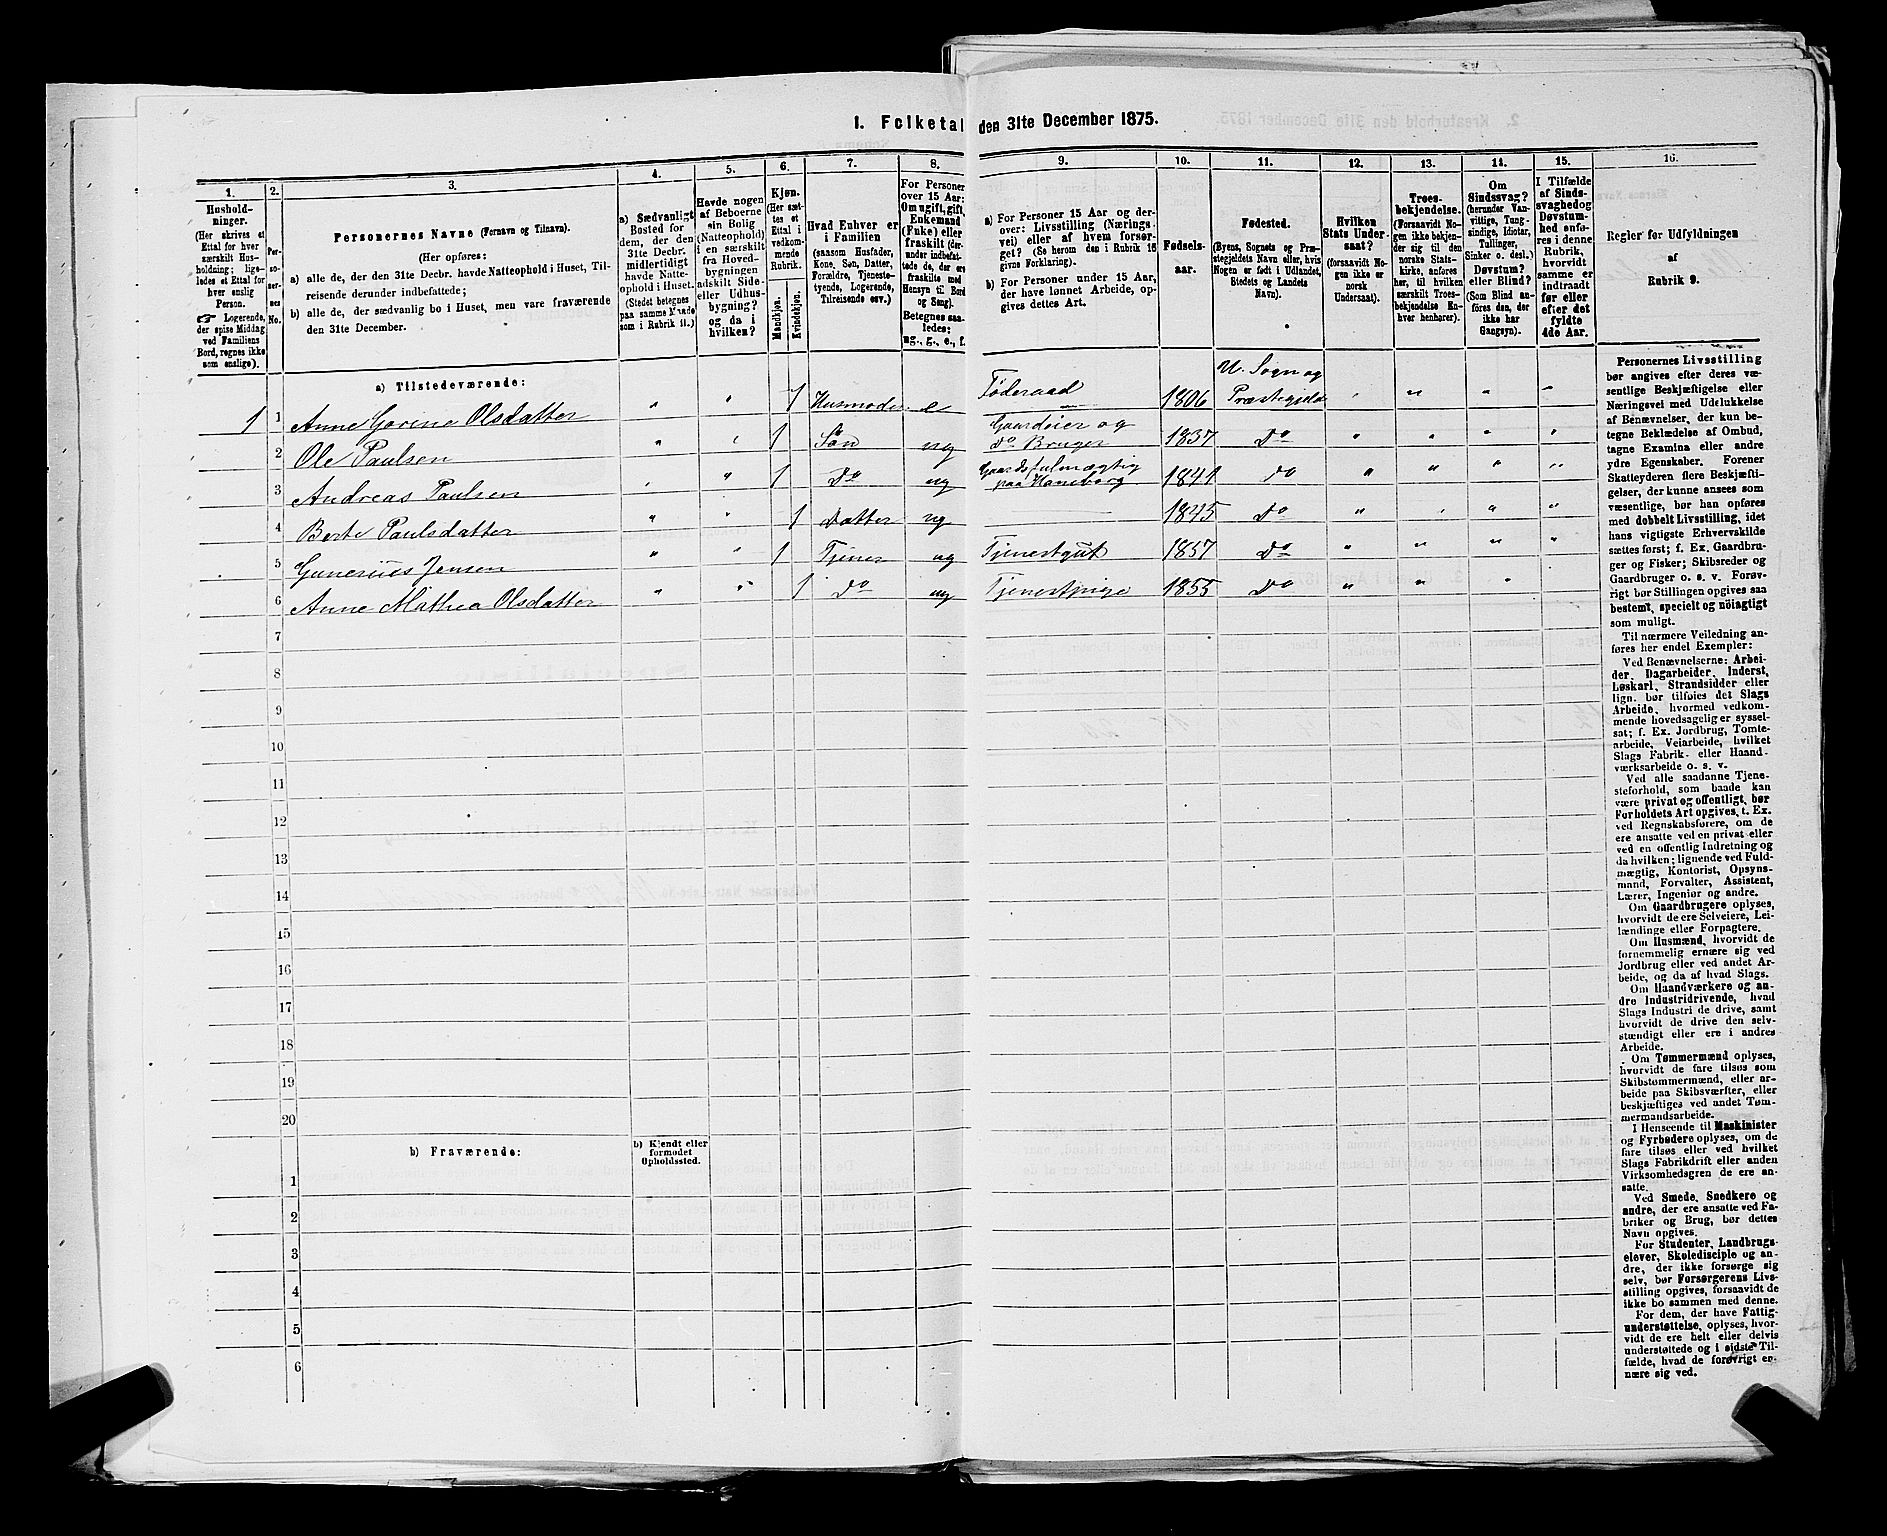 1. Folketal den 31te December 1875.
1. 2. 3. 4. 5. 6. 7. 8. 9. 10. 11. 12. 13. 14. 15. 16.
Hushold-
ninger.
(Her skrives et
Ettal for hver
særskilt Hus-
holdning; lige-
ledes et Ettal for
hver enslig
Person.
☞ Logerende,
der spise Middag
ved Familiens
Bord, regnes ikke
som enslige).
Per-
so-
ner-
nes
No.
Personernes Navne (Fornavn og Tilnavn).
(Her opføres:
a) alle de, der den 31te Decbr. havde Natteophold i Huset, Til-
reisende derunder indbefattede;
b) alle de, der sædvanlig bo i Huset, men vare fraværende
den 31te December.
a) Sædvanligt
Bosted for
dem, der den
31te Decbr.
midlertidigt
havde Natte-
ophold i Huset.
(Stedet betegnes
paa samme Maade
som i Rubrik 11.)
Havde nogen
af Beboerne
sin Bolig
(Natteophold)
i en særskilt
fra Hoved-
bygningen
adskilt Side-
eller Udhus-
bygning?
og da i
hvilken?
Kjøn.
(Her sæt-
tes et
Ettal i
vedkom-
mende
Rubrik.
Mandkjøn.
Kvindekjøn.
Hvad Enhver er
i Familien
(saasom Husfader,
Kone, Søn, Datter,
Forældre, Tjeneste-
tyende, Logerende,
Tilreisende osv.)
For Personer
over 15 Aar:
Om ugift, gift,
Enkemand
(Enke) eller
fraskilt (der-
under indbefat-
tede de, der ere
fraskilte med
Hensyn til Bord
og Seng).
Betegnes saa-
ledes:
ug., g., e., f.
a) For Personer 15 Aar og der-
over: Livsstilling (Nærings-
vei) eller af hvem forsør-
get? (Se herom den i Rubrik 16
givne Forklaring).
b) For Personer under 15 Aar,
der have lønnet Arbeide, op-
gives dettes Art.
Fødsels-
aar.
Fødested.
(Byens, Sognets og Præ-
stegjeldets Navn eller, hvis
Nogen er født i Udlandet,
Stedets og Landets
Navn).
Hvilken
Stats Under-
saat?
(forsaavidt No-
gen ikke er
norsk
Undersaat).
Troes-
bekjendelse.
(Forsaavidt No-
gen ikke bekjen-
der sig til den
norske Stats-
kirke, anføres
her, til hvilken
særskilt Troes-
bekjendelse En-
hver henhører).
Om
Sindssvag?
(herunder Van-
vittige, Tung-
sindige, Idiotar,
Tullinger,
Sinker o. desl.)
Døvstum?
eller Blind?
(Som Blind an-
føres den, der
ikke har
Gangsyn).
I Tilfælde
af Sinds-
svaghed og
Døvstum-
hed anfø-
res i denne
Rubrik,
hvorvidt
samme er
indtraadt
før eller
efter det
fyldte
4de Aar.
Regler før Udfyldningen
af
Rubrik 9.
a) Tilstedeværende:
1 1 Anne Gorine Olsdatter " " 1 Husmoder e Føderaad 1806 U. Sogn og Præstegjeld " " " "
2 Ole Paulsen " " 1 Søn ug Gaardeier og Do Bruger 1837 Do " " " "
3 Andreas Paulsen " " 1 Do ug Gaardsfulmægtig paa Haneborg 1841 do " " " "
4 Berte Paulsdatter " " 1 Datter ug 1845 Do " " " "
5 Gunerius Jensen " " 1 Tjener ug Tjenestgut 1857 Do " " " "
6 Anne Mathea Olsdatter " " 1 Do ug Tjenestpige 1855 Do " " "
7
8
9
10
11
12
13
14
15
16
17
18
19
20
b) Fraværende:
b) Kjendt eller
formodet
Opholdssted.
1
2
3
4
5
6
Personernes Livsstilling
bør angives efter deres væ-
sentlige Beskjæftigelse eller
Næringsvei med Udelukkelse
af Benævnelser, der kun be-
tegne Beklædelse af Ombud,
tagne Examina eller andre
ydre Egenskaber. Forener
Skatteyderen flere Beskjæfti-
gelser, der kunne ansees som
væsentlige, bør han opføres
med dobbelt Livsstilling, idet
hans vigtigste Erhvervskilde
sættes først; f. Ex. Gaardbru-
ger og Fisker; Skibsreder og
Gaardbruger o. s. v. Forøv-
rigt bør Stillingen opgives saa
bestemt, specielt og nøiagtigt
som muligt.
Til nærmere Veiledning an-
føres her endel Exempler:
Ved Benævnelserne: Arbei-
der, Dagarbeider, Inderst,
Løskarl, Strandsidder eller
lign. bør tilføies det Slags
Arbeide, hvormed vedkom-
mende hovedsagelig er syssel-
sat; f. Ex. Jordbrug, Tomte-
arbeide, Veiarbeide, hvilket
Slags Fabrik- eller Haand-
værksarbeide o. s. v.
Ved alle saadanne Tjene-
steforhold, som baade kan
være privat og offentligt, bør
Forholdets Art opgives, t. Ex.
ved Regnskabsførere, om de
ere ansatte ved en privat eller
ved en offentlig Indretning og
da hvilken; lignende ved Fuld-
mægtig, Kontorist, Opsyns-
mand, Forvalter, Assistent,
Lærer, Ingeniør og andre.
Om Gaardbrugere oplyses,
hvorvidt de ere Selveiere, Lei-
lændinge eller Forpagtere.
Om Husmænd, hvorvidt de
fornemmelig ernære sig ved
Jordbrug eller ved andet Ar-
beide, og da af hvad Slags.
Om Haandværkere og an-
dre Industridrivende, hvad
Slags Industri de drive, samt
hvorvidt de drive den selv-
stændigt eller ere i andres
Arbeide.
Om Tømmermænd oplyses,
hvorvidt de fare tilsøs som
Skibstømmermænd, eller ar-
beide paa Skibsværfter, eller
beskjæftiges ved andet Tøm-
mermandsarbeide.
I Henseende til Maskinister
og Fyrbødere oplyses, om de
fare tilsøs eller ved hvilket
Slags Fabrikdrift eller anden
Virksomhedsgren de ere an-
satte.
Ved Smede, Snedkere og
andre, der ere ansatte ved Fa-
briker og Brug, bør dettes
Navn opgives.
For Studenter, Landbrugs-
elever, Skoledisciple og an-
dre, der ikke forsørge sig
selv, bør Forsørgerens Livs-
stilling opgives, forsaavidt de
ikke bo sammen med denne.
For dem, der have Fattig-
understøttelse, oplyses, hvor-
vidt de ere helt eller delvis
understøttede og i sidste Til-
fælde, hvad de forøvrigt er-
nære sig ved.